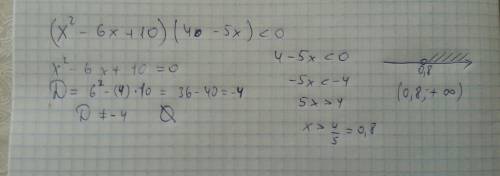 (x² - 6x + 10)(40 - 5x) < 0
x² - 6x + 10 = 0
D = 6² - (4)·10 = 36 - 40 = -4
D ≠ -4 Ø
4 - 5x < 0
-5x < -4
5x > 4
x > 4/5 = 0,8
0,8
(0,8; +∞)